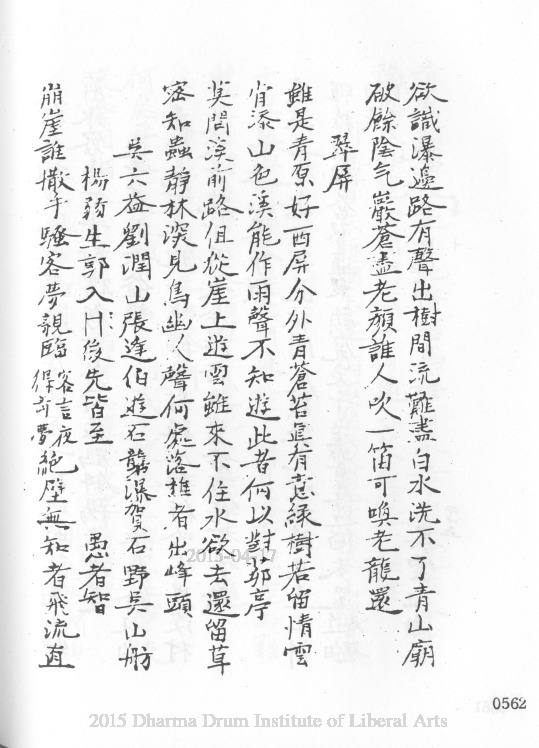 欲識瀑邊路有聲出樹間流難盡白水洗不了青山廟
破餘陰气巖蒼盡老顏誰人吹一笛可喚老龍還
翠屏
雖是青原好西屏分外青蒼苔真有意緑樹若留情雲
肯添山色溪能作雨聲不知遊此者何以對茆亭
莫問溪前路但從崖上遊雲雖來不住水欲去還留草
密知蟲靜林深見鳥幽人聲何處落樵者出峰頭
吳六益劉潤山張逢伯遊石
瀑賀石野吳山舫
楊弱生郭入
後先皆至 愚者智
崩崖誰撒手騷客夢親臨
客言夜
得奇夢
絕壁無知者飛流直
0562
2015-04-17
2015 Dharma Drum Institute of Liberal Arts